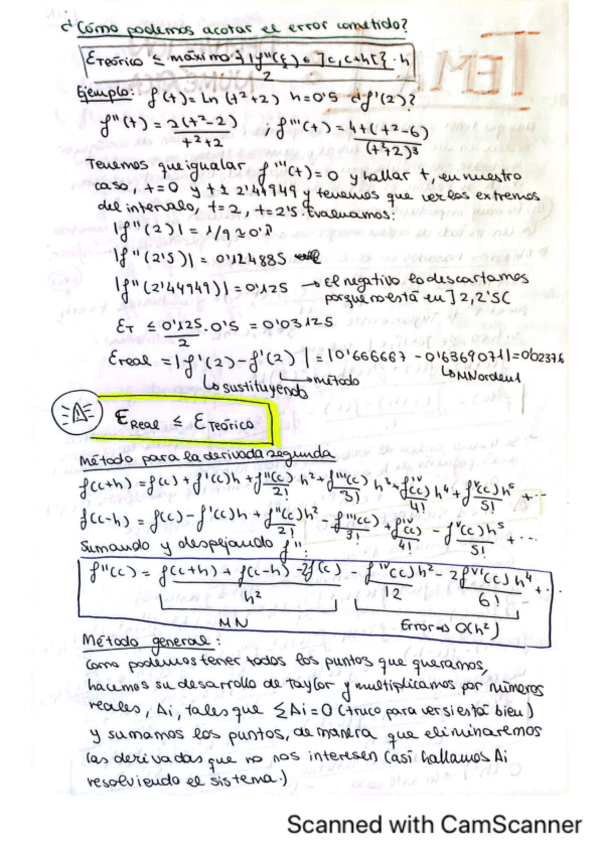 ¿Cómo podemos acotar el error cometido?
ETeórico ≤ máximo {|f''(ξ)| ∈ ]c, c+h[} · h
2
Ejemplo: f(t) = ln(t²+2) h=0'5 ¿f'(2)?
f''(t) = -2(t²-2) ; f'''(t) = 4t(t²-6)
t²+2 (t²+2)³
Tenemos que igualar f'''(t)=0 y hallar t, en nuestro
caso, t=0 y t± 2'44949 y tenemos que ver los extremos
del intervalo, t=2, t=2'5. Evaluamos:
|f''(2)| = 1/9 ≈ 0'1
|f''(2'5)| = 0'124885
|f''(2'44949)| = 0'125 → el negativo lo descartamos
porque no está en ]2,2'5[
ET ≤ 0'125·0'5 = 0'03125
2
Ereal = |f'(2) - f'(2)| = |0'666667 - 0'636907| = 0'02976
↳ sustituyendo ↳ método ↳ MN orden 1
EReal ≤ ETeórico
Método para la derivada segunda
f(c+h) = f(c) + f'(c)h + f''(c) h² + f'''(c) h³ + f^IV(c) h⁴ + f^V(c) h⁵ + ...
2! 3! 4! 5!
f(c-h) = f(c) - f'(c)h + f''(c)h² - f'''(c) + f^IV(c) - f^V(c)h⁵ + ...
2! 3! 4! 5!
Sumando y despejando f'':
f''(c) = f(c+h) + f(c-h) - 2f(c) - f^IV(c)h² - 2f^VI(c)h⁴ + ..
h² 12 6!
MN Error → O(h²)
Método general:
Como podemos tener todos los puntos que queramos,
hacemos su desarrollo de Taylor y multiplicamos por números
reales, Ai, tales que ΣAi=0 (truco para ver si está bien)
y sumamos los puntos, de manera que eliminaremos
las derivadas que no nos interesen (así hallamos Ai
resolviendo el sistema.)
Scanned with CamScanner